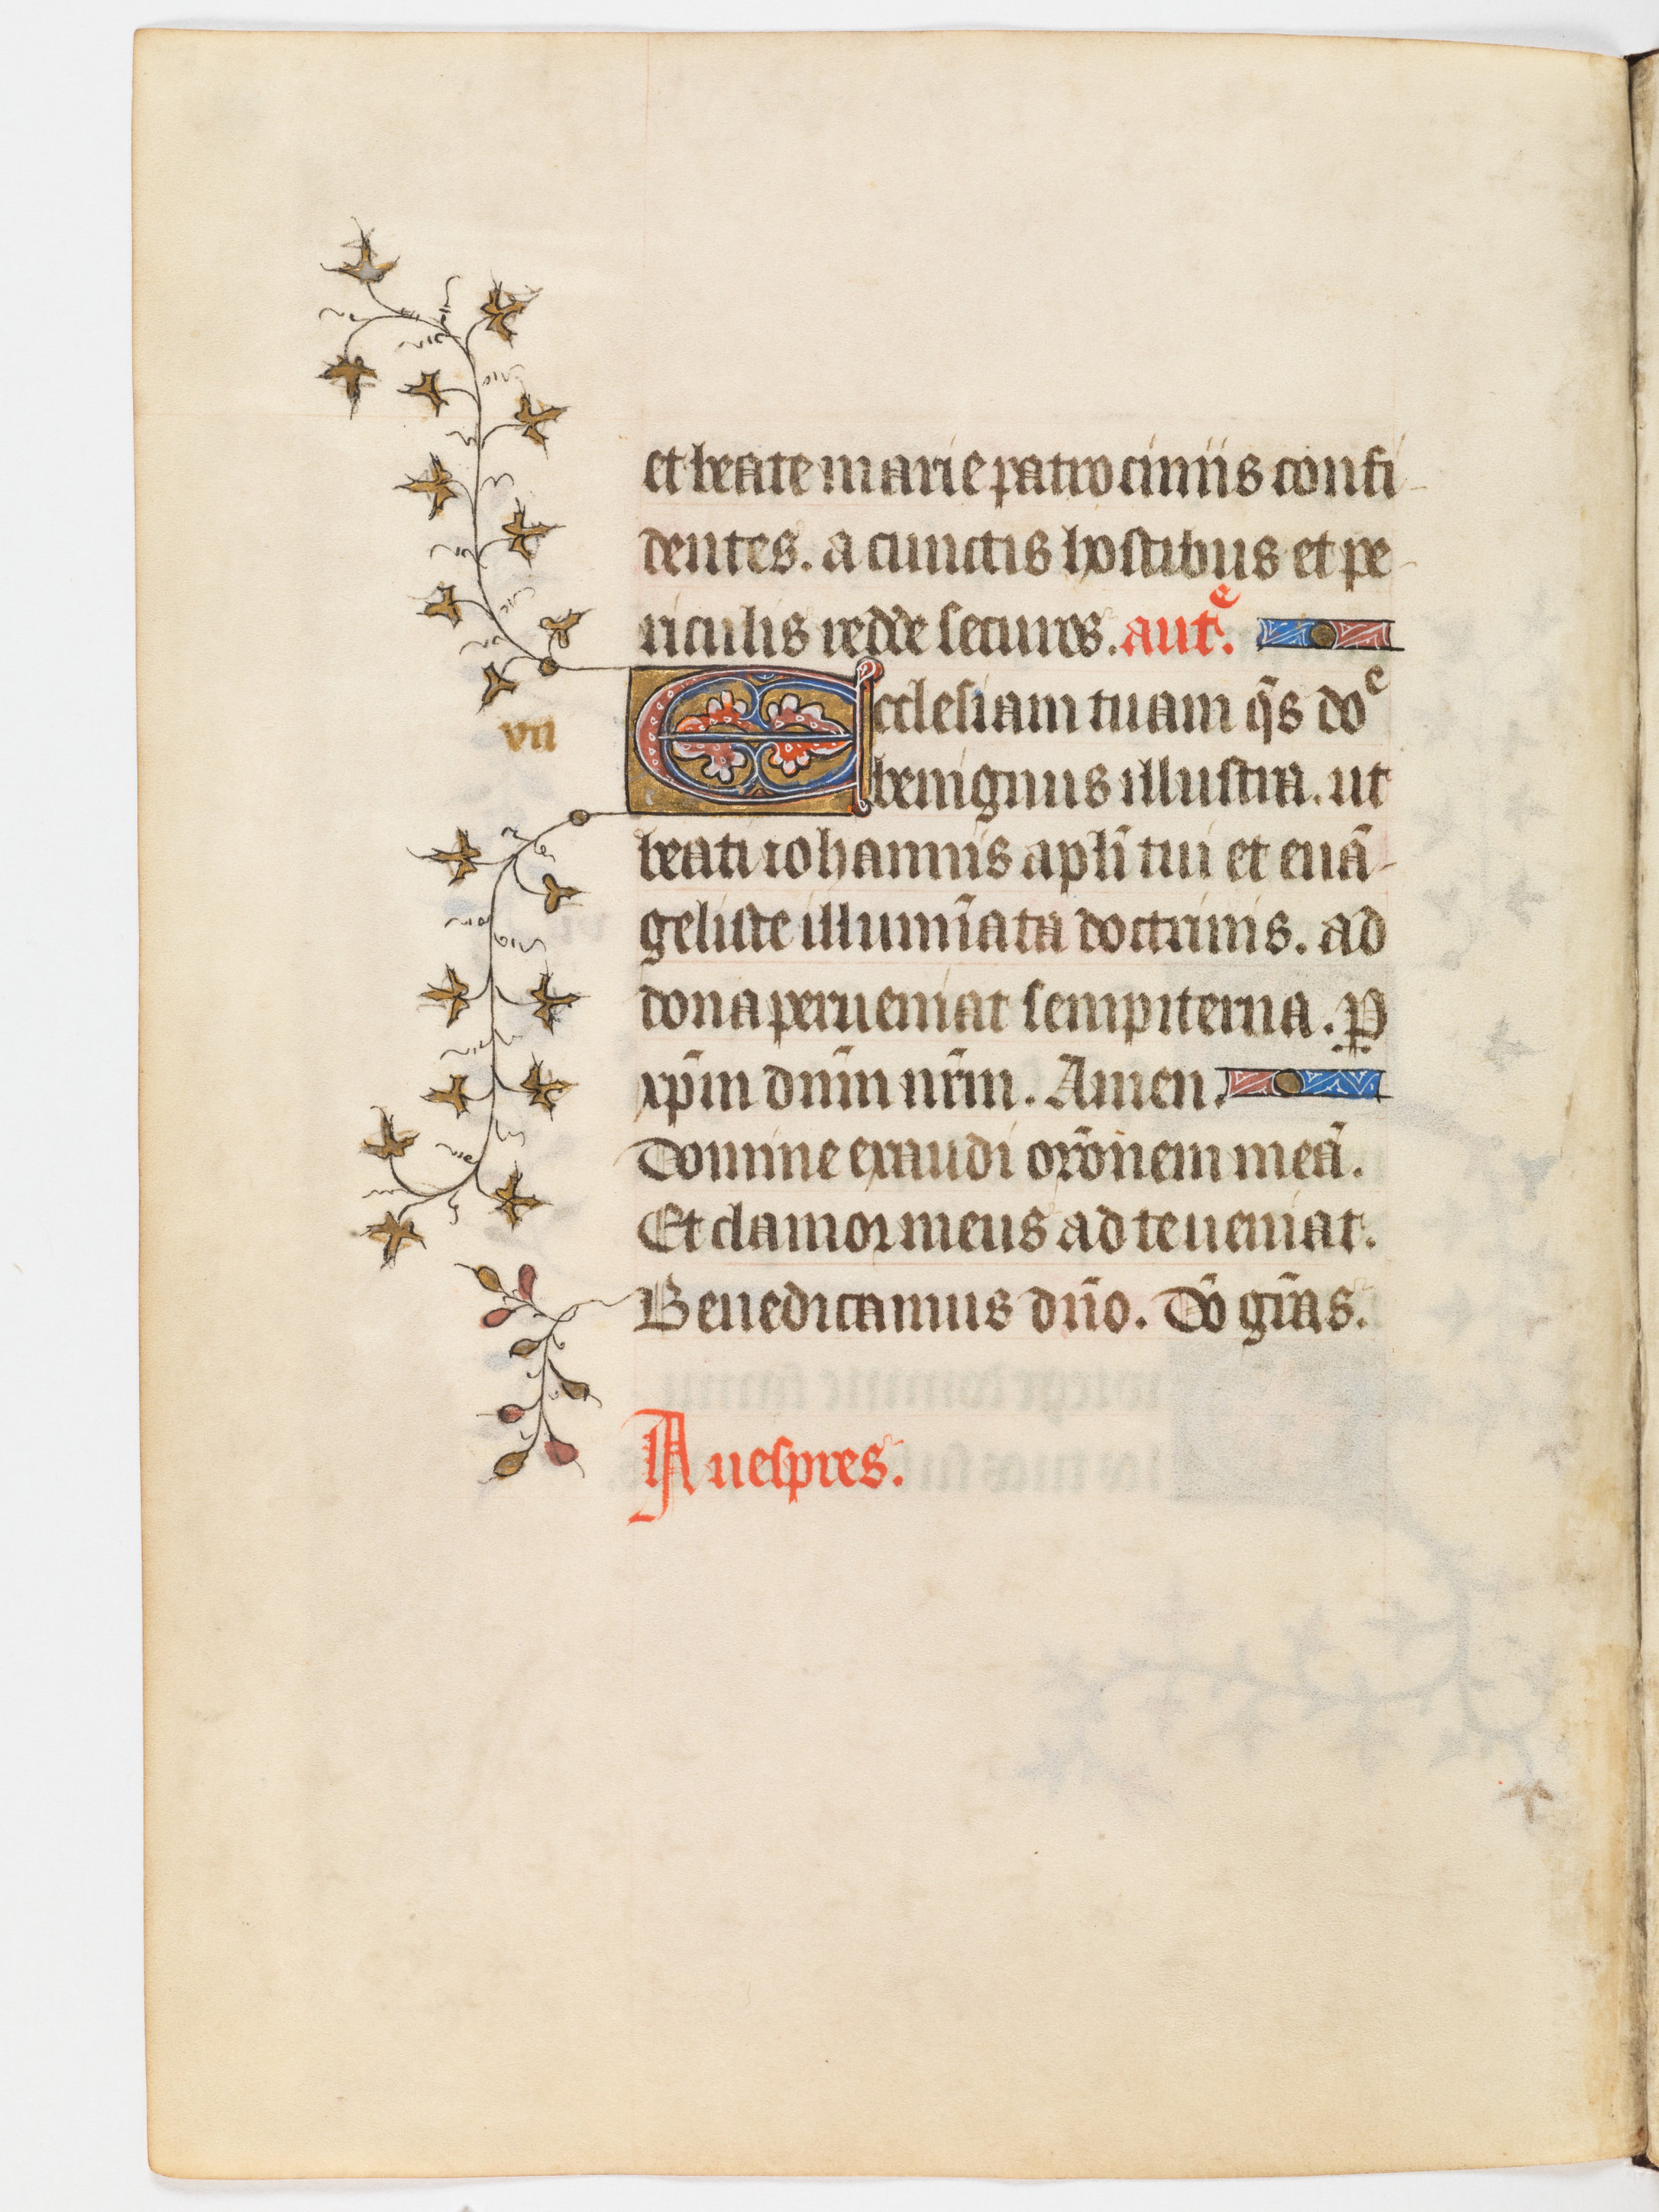 et beate marie patrociniis confi-
dentes. a cunctis hostibus et pe-
riculis redde securos. aut͛e.
Ecclesiam tuam q̄s doᵉ
vii
benignus illustra. ut
beati iohannis apl̄i tui et euā-
geliste illumīata doctrinis. ad
dona perueniat sempiterna. P̱
xp̄m dn̄m nr̄m. Amen.
Domine exaudi or̄onem meā.
Et clamor meus ad te ueniat.
Benedicamus dn̄o. Dō gr̄as.
A uespres.